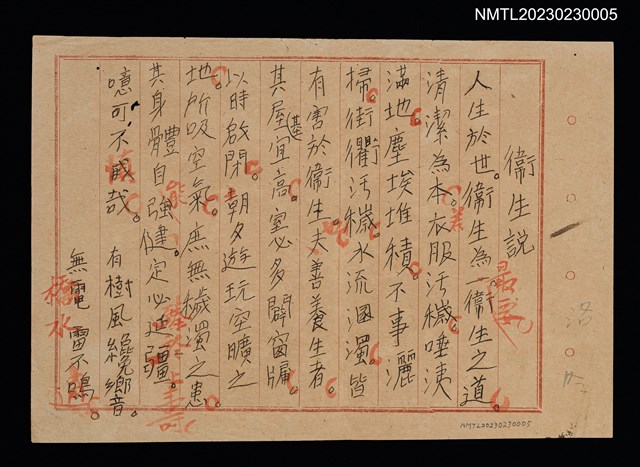 NMTL20230230005
衛生說
人生於世。衛生為一衛生之道。
清潔為本。衣服汚穢唾洟
滿地。塵埃堆積。不事灑
掃。街衢汚穢。水流溷濁。皆
有害於衛生。夫善養生者。
其屋宜高。基室必多闢窗牖。
以時啟閉。朝夕遊玩空曠之
地。所吸空氣。庶無穢濁之患。
其身體自強健。定必疆。
噫可不哉。
有樹風纔鄉音。
無電雷不鳴。
最要
NMTL20230230005